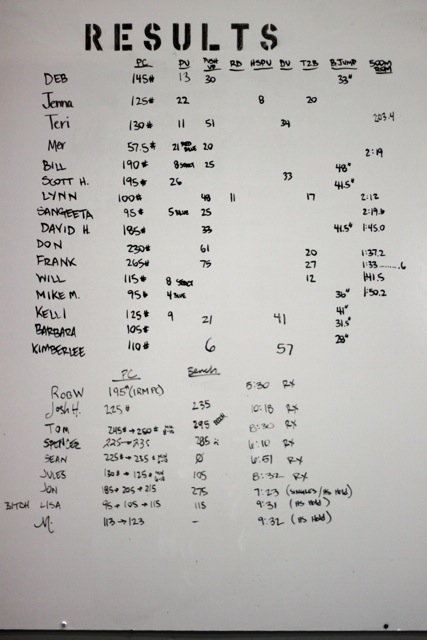 RESULTS
PC PU PUSH UP RD HSPU DU T2B B JUMP 500M ROW
DEB 145# 13 30 33"
Jenna 125# 22 8 20
Teri 130# 11 51 34 203.4
Mer 57.5# 21 RED BLUE 20 2:19
BILL 190# 8 STRICT 25 48"
SCOTT H. 195# 26 33 41.5"
LYNN 100# 48 11 17 2:12
SANGEETA 95# 5 BLUE 25 2:19.6
DAVID H. 185# 33 41.5" 1:45.0
DON 230# 61
FRANK 265# 75 20 1:37.2
WILL 115# 8 STRICT 27 1:33.......6
MIKE M. 95# 4 BLUE 12 1:41.5
KELLI 125# 9 21 41 36" 1:50.2
BARBARA 105# 41" 31.5"
KIMBERLEE 110# 6 57 28"
PC Bench
ROB W 195# (1RM PC) 5:30 RX
Josh H. 225# 235 10:18 RX
TOM 245# → 250# 295 8:30 RX
SPENCER 225 → 235 285 6:10 RX
SEAN 225# → 235# Ø 6:51 RX
JULES 130# → 125# 105 8:32 RX
JON 185 → 205 → 215 275 7:23 (SINGLES/HS Hold)
BITCH LISA 95 → 105 → 115 115 9:31 (HS Hold)
M. 113 → 123 - 9:32 (HS Hold)